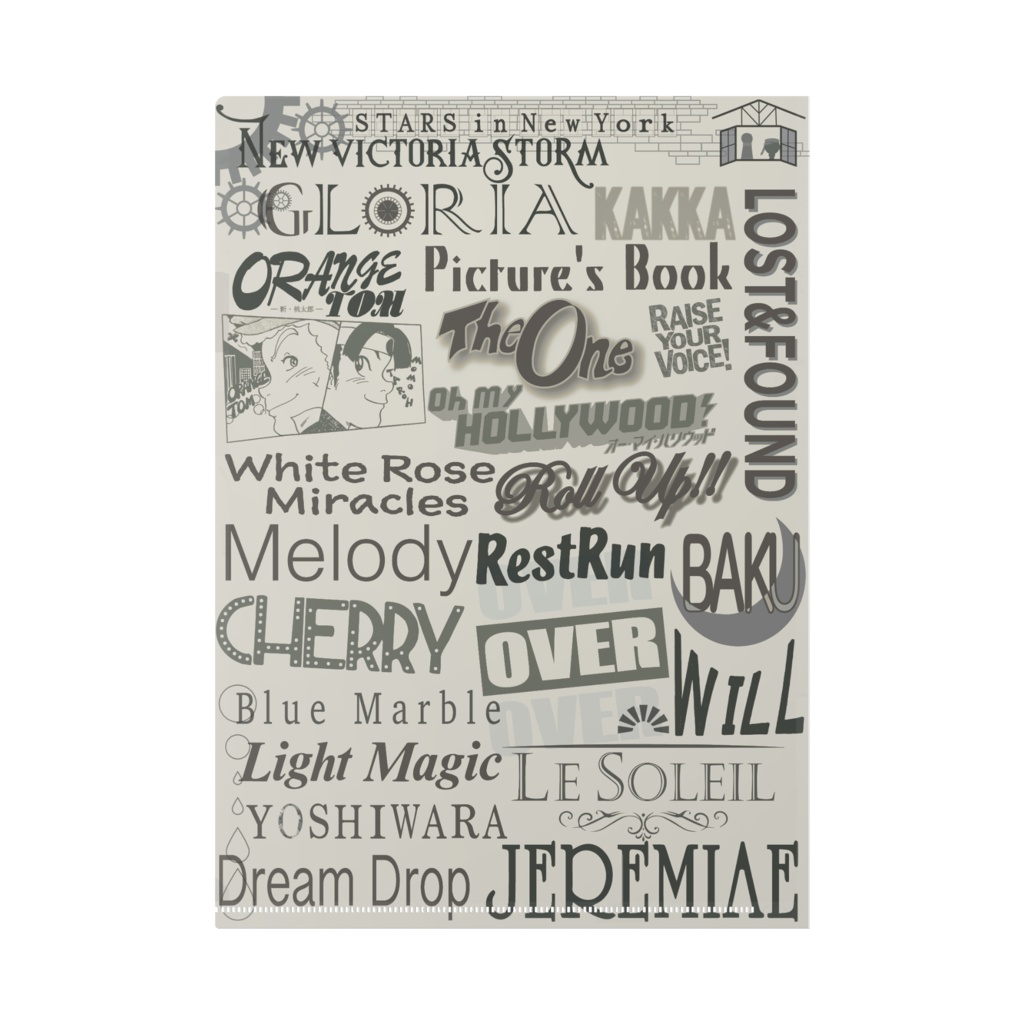 STARS in New York
NEW VICTORIA STORM
GLORIA
KAKKA
LOST&FOUND
ORANGE
TOM
― 新・桃太郎 ―
Picture's Book
The One
RAISE
YOUR
VOICE!
ORANGE
TOM
MOMOTAROH
Oh my
HOLLYWOOD!
オー・マイ・ハリウッド
White Rose
Miracles
Roll Up!!
Melody
RestRun
BAKU
CHERRY
OVER
OVER
OVER
WILL
Blue Marble
Light Magic
LE SOLEIL
YOSHIWARA
Dream Drop
JEREMIAE